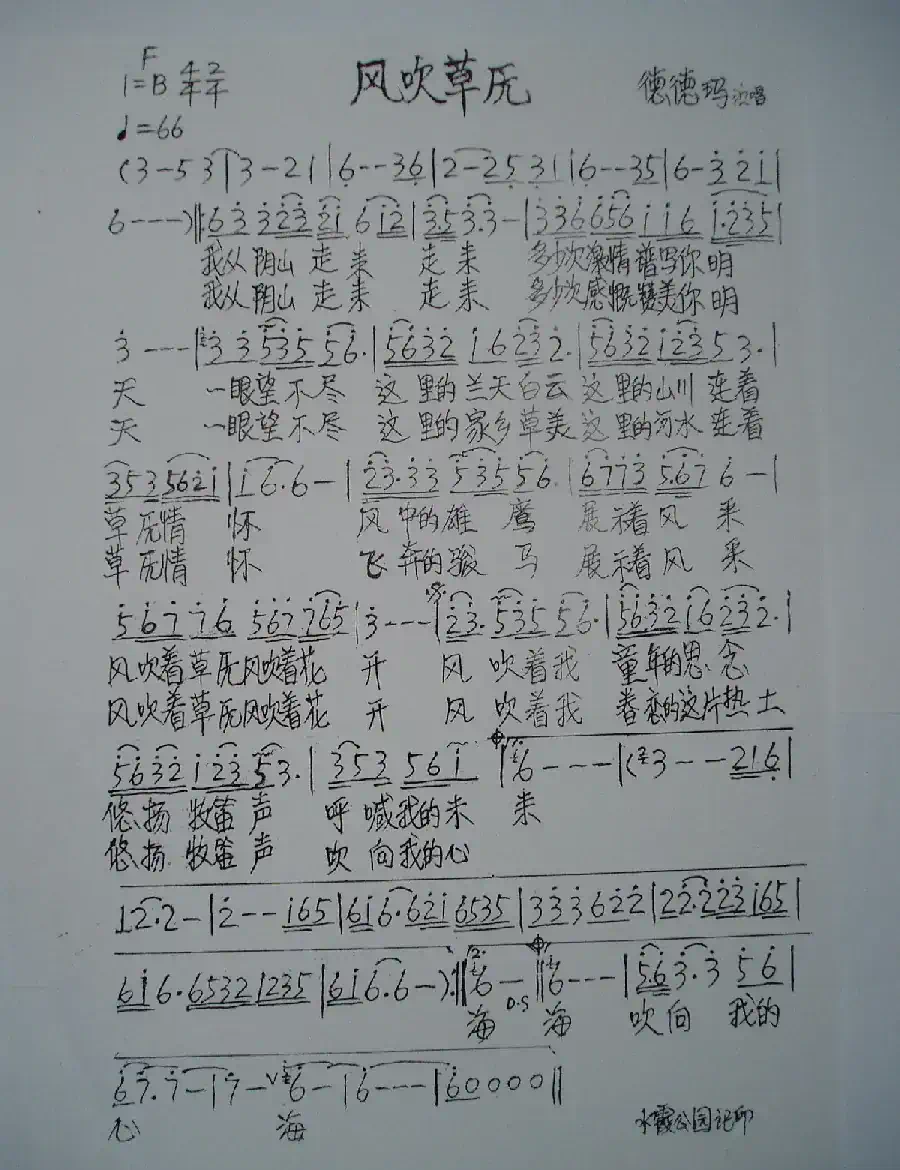 F
1=B 4/4 2/4
风吹草原
德德玛演唱
♩=66
(3-5 3|3-21|6--36|2-25 31|6--35|6-3 2i|
6---)||:63 323 2i 6i2|3.5 3.3-|336 656 i i6 i.235|
我从阴山 走来 走来 多少次激情谱写你明
我从阴山 走来 走来 多少次感慨赞美你明
3---|3 3 535 56.|5632 i6 232.|5632 i235 3.|
天 一眼望不尽 这里的兰天白云 这里的山川连着
天 一眼望不尽 这里的家乡草美 这里的河水连着
353 562i|i 6.6-|23.33 535 56.|6773 5.67 6-|
草原情 怀 风中的雄鹰 展示着风采
草原情 怀 飞奔的骏马 展示着风采
567 76 567 765|3---|23. 535 56.|56.32 i6 232.|
风吹着草原风吹着花 开 风吹着我 童年的思念
风吹着草原风吹着花 开 风吹着我 眷恋的这片热土
5632 i23 53.|353 56i|6---|(3--216|
悠扬牧笛声 呼喊我的未来
悠扬牧笛声 吹向我的心
12.2-|2--i65|6i6.62i 6535|333622|22.223 i65|
6i6.6532 1235|6i6.6-):|| 2. 6- D.S ||6---|563.3 56|
海 海 吹向 我的
67.7-|7-V6-|6---|60000||
心 海
水霞公园记印